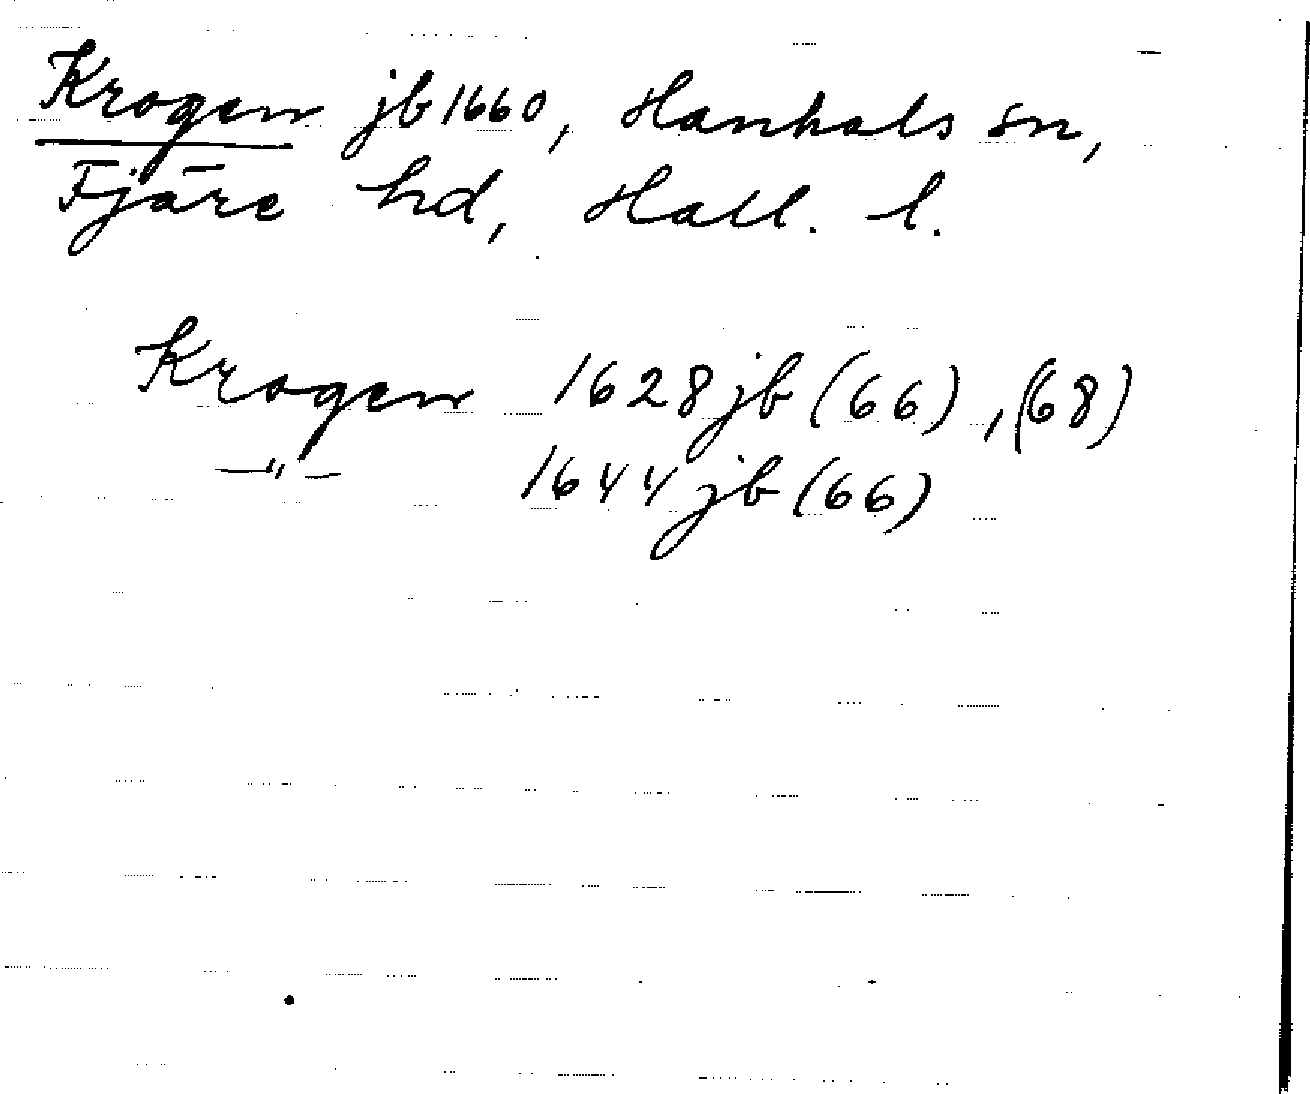 Krogen jb 1660, Hanhals sn,
Fjäre hd, Hall. l.
Krogen 1628 jb (66), (68)
—"— 1644 jb (66)